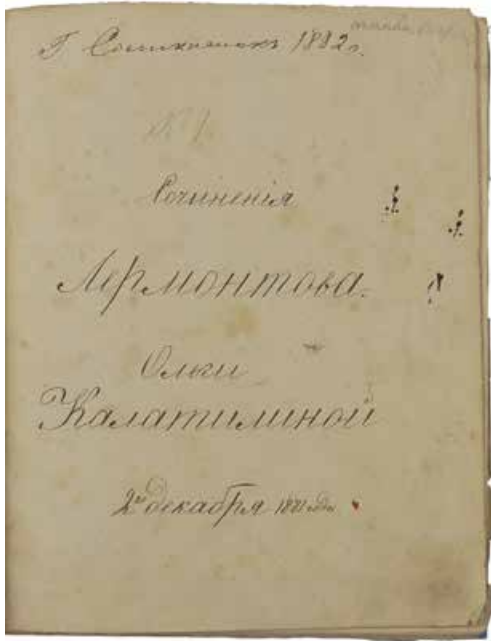 Г. 1882 г.
№ 1.
Сочиненія
Лермонтова.
Ольги
Калатилиной
2го декабря 1881 года